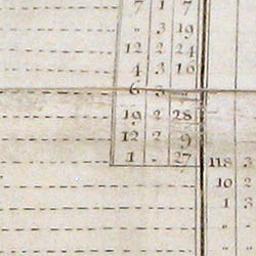 7 1 7
" 3 19
12 2 24
4 3 16
6 3 "
19 2 28
12 2 9
1 - 27
118 3
10 2
1 3
" "
" "